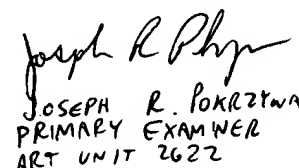 Joseph R
JOSEPH R. POKRZYWA
PRIMARY EXAMINER
ART UNIT 2622